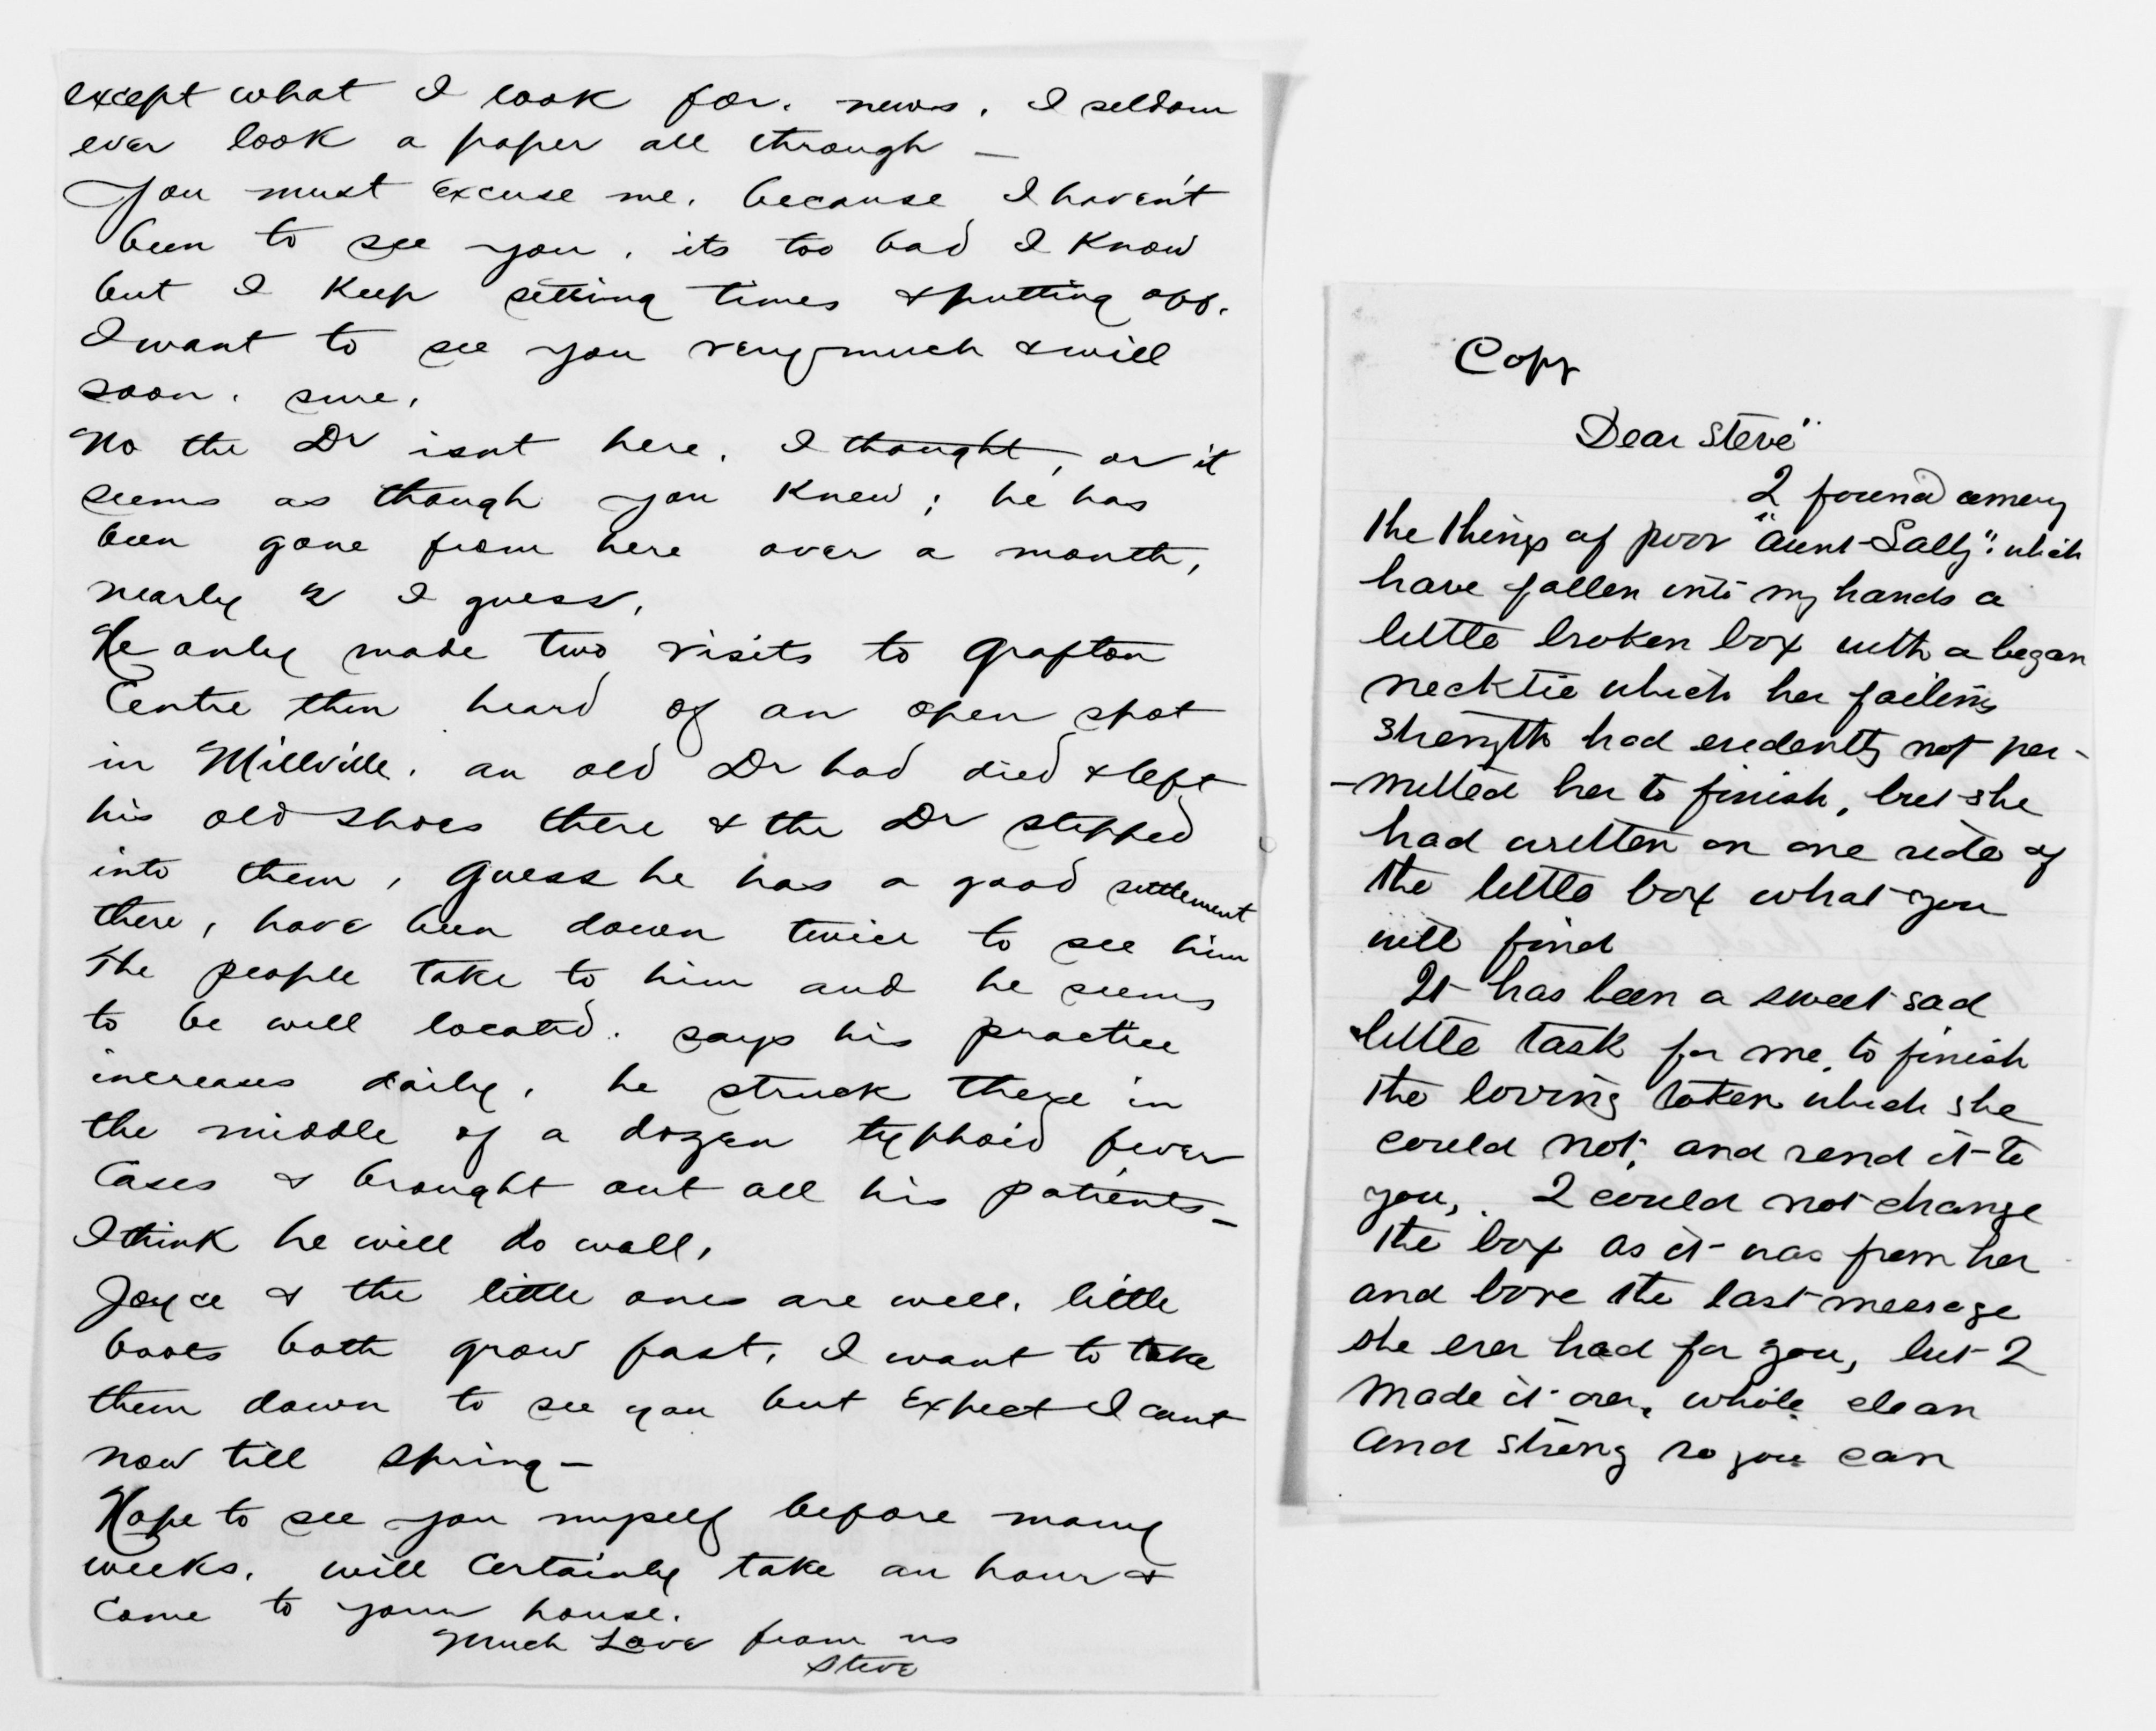 except what I look for. news. I seldom
ever look a paper all through —
You must excuse me. because I haven't
been to see you. its too bad I know
but I keep setting times & putting off.
I want to see you very much & will
soon. sure.
No the Dr isnt here. I thought, or it
seems as though you knew; he has
been gone from here over a month,
nearly 2 I guess.
He only made two visits to Grafton
Centre then heard of an open spot
in Millville. an old Dr had died & left
his old shoes there & the Dr stepped
into them, guess he has a good settlement
there, have been down twice to see him
The people take to him and he seems
to be well located. says his practice
increases daily, he struck there in
the middle of a dozen typhoid fever
Cases & brought out all his patients —
I think he will do well,
Joyce & the little ones are well. little
boots both grow fast. I want to take
them down to see you but Expect I cant
now till spring —
Hope to see you myself before many
weeks. will certainly take an hour &
Come to your house.
Much Love from us
Steve
Copy
Dear Steve"
I found among
the things of poor "Aunt Sally": which
have fallen into my hands a
little broken box with a began
necktie which her failing
strength had evidently not per-
-mitted her to finish, but she
had written on one side of
the little box what you
will find
It has been a sweet sad
little task for me to finish
the loving token which she
could not, and send it to
you,. I could not change
the box as it was from her
and bore the last message
she ever had for you, but I
made it over, whole clean
and strong so you can